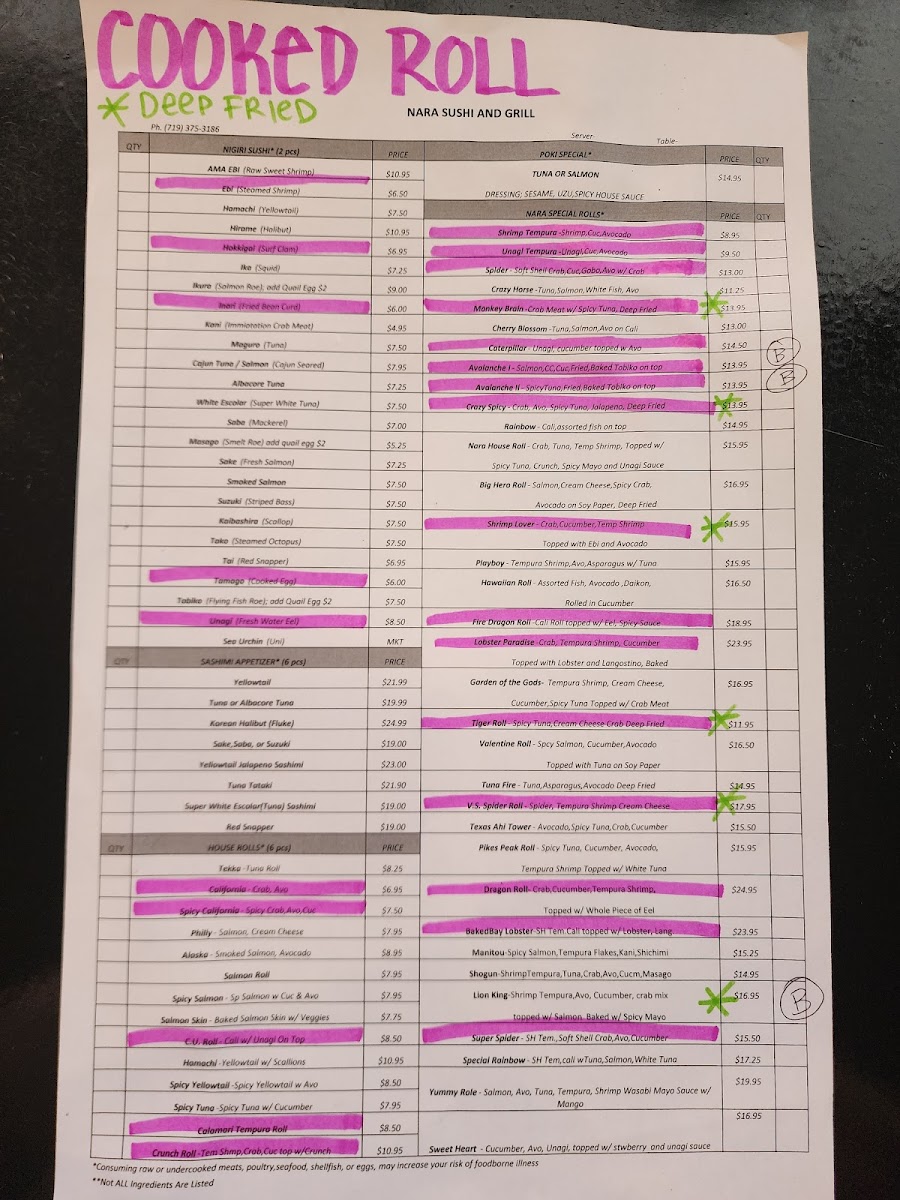 COOKED ROLL
* DEEP FRIED
NARA SUSHI AND GRILL
Ph. (719) 375-3186
Server:
Table:
QTY NIGIRI SUSHI* (2 pcs) PRICE
AMA EBI (Raw Sweet Shrimp) $10.95
Ebi (Steamed Shrimp) $6.50
Hamachi (Yellowtail) $7.50
Hirame (Halibut) $10.95
Hokkigai (Surf Clam) $6.95
Ika (Squid) $7.25
Ikura (Salmon Roe); add Quail Egg $2 $9.00
Inari (Fried Bean Curd) $6.00
Kani (Immiatation Crab Meat) $4.95
Maguro (Tuna) $7.50
Cajun Tuna / Salmon (Cajun Seared) $7.95
Albacore Tuna $7.25
White Escolar (Super White Tuna) $7.50
Saba (Mackerel) $7.00
Masago (Smelt Roe) add quail egg $2 $5.25
Sake (Fresh Salmon) $7.25
Smoked Salmon $7.50
Suzuki (Striped Bass) $7.50
Kaibashira (Scallop) $7.50
Tako (Steamed Octopus) $7.50
Tai (Red Snapper) $6.95
Tamago (Cooked Egg) $6.00
Tobiko (Flying Fish Roe); add Quail Egg $2 $7.50
Unagi (Fresh Water Eel) $8.50
Sea Urchin (Uni) MKT
QTY SASHIMI APPETIZER* (6 pcs) PRICE
Yellowtail $21.99
Tuna or Albacore Tuna $19.99
Korean Halibut (Fluke) $24.99
Sake,Saba, or Suzuki $19.00
Yellowtail Jalapeno Sashimi $23.00
Tuna Tataki $21.90
Super White Escolar(Tuna) Sashimi $19.00
Red Snapper $19.00
QTY HOUSE ROLLS* (6 pcs) PRICE
Tekka -Tuna Roll $8.25
California - Crab, Avo $6.95
Spicy California - Spicy Crab,Avo,Cuc $7.50
Philly - Salmon, Cream Cheese $7.95
Alaska - Smoked Salmon, Avocado $8.95
Salmon Roll $7.95
Spicy Salmon - Sp Salmon w Cuc & Avo $7.95
Salmon Skin - Baked Salmon Skin w/ Veggies $7.75
C.U. Roll - Cali w/ Unagi On Top $8.50
Hamachi -Yellowtail w/ Scallions $10.95
Spicy Yellowtail -Spicy Yellowtail w Avo $8.50
Spicy Tuna -Spicy Tuna w/ Cucumber $7.95
Calamari Tempura Roll $8.50
Crunch Roll -Tem Shmp,Crab,Cuc top w/Crunch $10.95
POKI SPECIAL* PRICE QTY
TUNA OR SALMON $14.95
DRESSING; SESAME, UZU,SPICY HOUSE SAUCE
NARA SPECIAL ROLLS* PRICE QTY
Shrimp Tempura -Shrimp,Cuc,Avocado $8.95
Unagi Tempura -Unagi,Cuc,Avocado $9.50
Spider - Soft Shell Crab,Cuc,Gabo,Avo w/ Crab $13.00
Crazy Horse -Tuna,Salmon,White Fish, Avo $11.25
Monkey Brain -Crab Meat w/ Spicy Tuna, Deep Fried * $13.95
Cherry Blossom -Tuna,Salmon,Avo on Cali $13.00
Caterpillar - Unagi, cucumber topped w Avo $14.50
Avalanche I - Salmon,CC,Cuc,Fried,Baked Tobiko on top $13.95 B
Avalanche II - SpicyTuna,Fried,Baked Tobiko on top $13.95 B
Crazy Spicy - Crab, Avo, Spicy Tuna, Jalapeno, Deep Fried * $13.95
Rainbow - Cali,assorted fish on top $14.95
Nara House Roll - Crab, Tuna, Temp Shrimp, Topped w/ $15.95
Spicy Tuna, Crunch, Spicy Mayo and Unagi Sauce
Big Hero Roll - Salmon,Cream Cheese,Spicy Crab, $16.95
Avocado on Soy Paper, Deep Fried
Shrimp Lover - Crab,Cucumber,Temp Shrimp * $15.95
Topped with Ebi and Avocado
Playboy - Tempura Shrimp,Avo,Asparagus w/ Tuna $15.95
Hawaiian Roll - Assorted Fish, Avocado ,Daikon, $16.50
Rolled in Cucumber
Fire Dragon Roll -Cali Roll topped w/ Eel, Spicy Sauce $18.95
Lobster Paradise -Crab, Tempura Shrimp, Cucumber $23.95
Topped with Lobster and Langostino, Baked
Garden of the Gods- Tempura Shrimp, Cream Cheese, $16.95
Cucumber,Spicy Tuna Topped w/ Crab Meat
Tiger Roll - Spicy Tuna,Cream Cheese Crab Deep Fried * $11.95
Valentine Roll - Spcy Salmon, Cucumber,Avocado $16.50
Topped with Tuna on Soy Paper
Tuna Fire - Tuna,Asparagus,Avocado Deep Fried $14.95
V.S. Spider Roll - Spider, Tempura Shrimp Cream Cheese * $17.95
Texas Ahi Tower - Avocado,Spicy Tuna,Crab,Cucumber $15.50
Pikes Peak Roll - Spicy Tuna, Cucumber, Avocado, $15.95
Tempura Shrimp Topped w/ White Tuna
Dragon Roll- Crab,Cucumber,Tempura Shrimp, $24.95
Topped w/ Whole Piece of Eel
BakedBay Lobster-SH Tem.Cali topped w/ Lobster, Lang $23.95
Manitou-Spicy Salmon,Tempura Flakes,Kani,Shichimi $15.25
Shogun-ShrimpTempura,Tuna,Crab,Avo,Cucm,Masago $14.95
Lion King-Shrimp Tempura,Avo, Cucumber, crab mix * $16.95 B
topped w/ Salmon, Baked w/ Spicy Mayo
Super Spider - SH Tem.,Soft Shell Crab,Avo,Cucumber $15.50
Special Rainbow - SH Tem,cali wTuna,Salmon,White Tuna $17.25
Yummy Role - Salmon, Avo, Tuna, Tempura, Shrimp Wasabi Mayo Sauce w/ $19.95
Mango
Sweet Heart - Cucumber, Avo, Unagi, topped w/ stwberry and unagi sauce $16.95
*Consuming raw or undercooked meats, poultry,seafood, shellfish, or eggs, may increase your risk of foodborne illness
**Not ALL Ingredients Are Listed